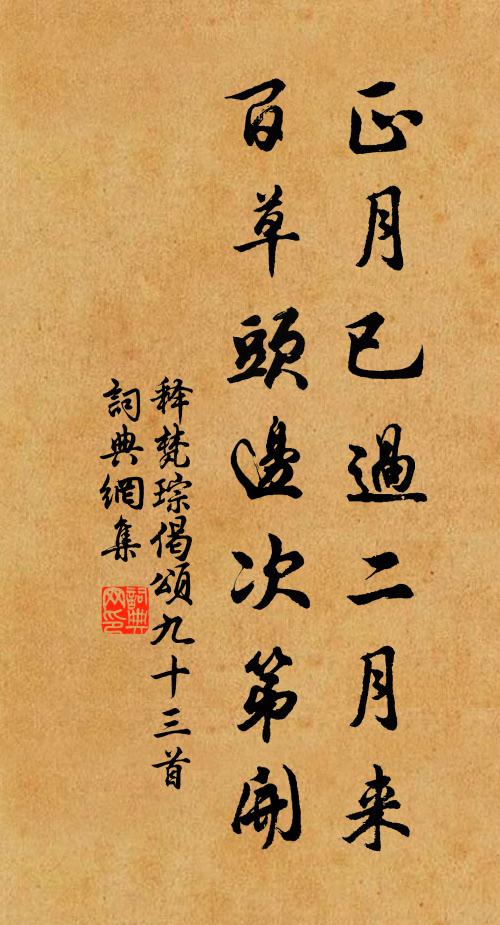 正月已過二月来
百草頭邊次第開
释梵琮偈頌九十三首
詞典網集
詞典网印